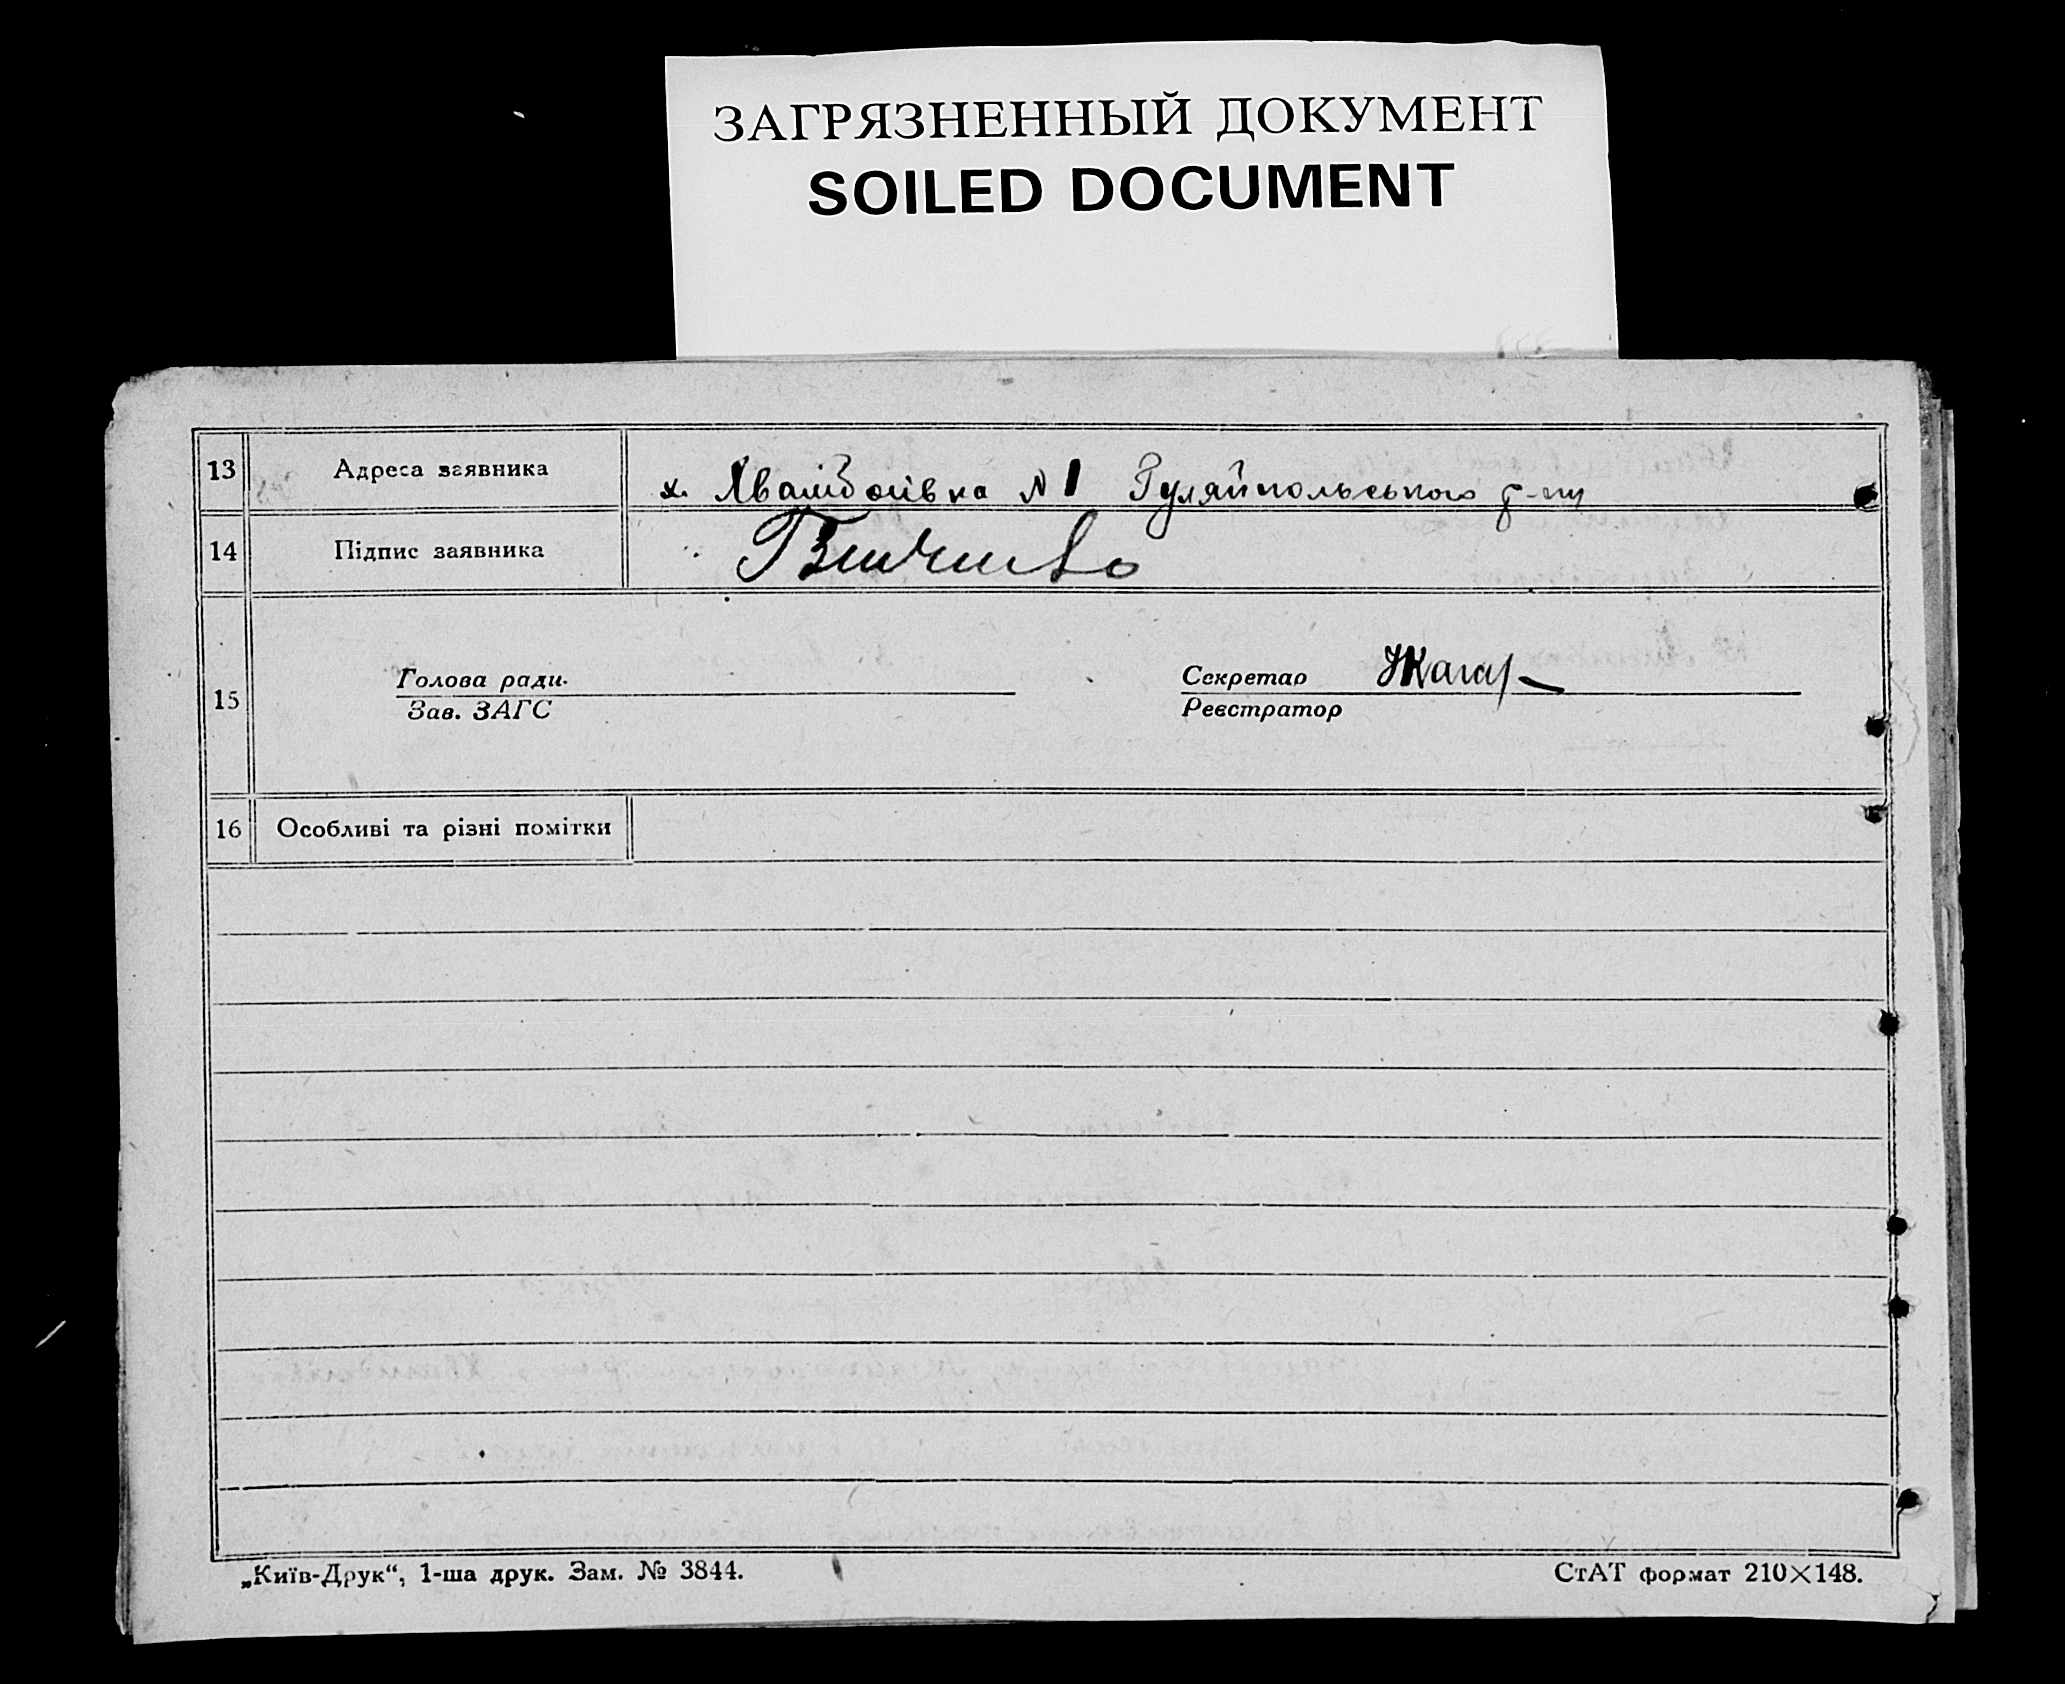 ЗАГРЯЗНЕННЫЙ ДОКУМЕНТ
SOILED DOCUMENT
13 Адреса заявника х. Хвалібогівка № 1 Гуляйпольського р-ну
14 Підпис заявника
15 Голова ради. Секретар
Зав. ЗАГС Реєстратор
16 Особливі та різні помітки
„Київ-Друк“, 1-ша друк. Зам. № 3844. СтАТ формат 210×148.